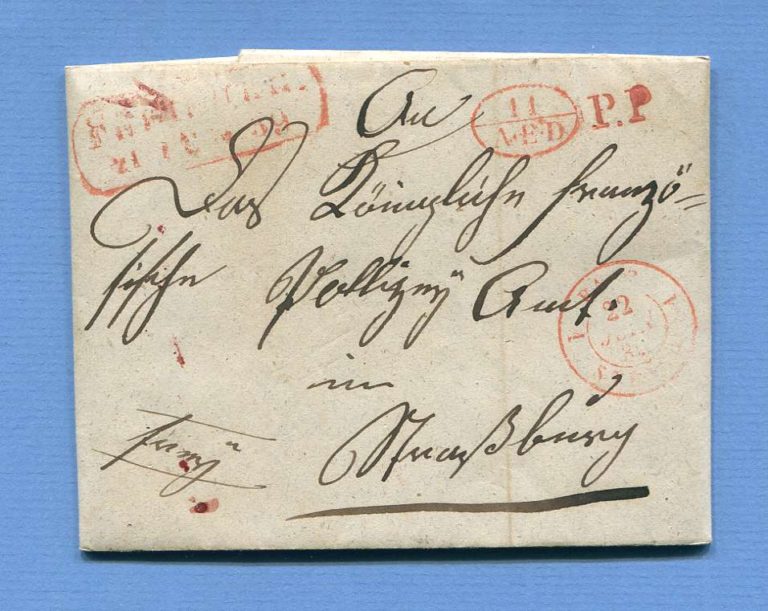 An
11
A.E.D
P.P
Das Königliche französische
Pollizey Amt.
22
im
Straßburg
franz